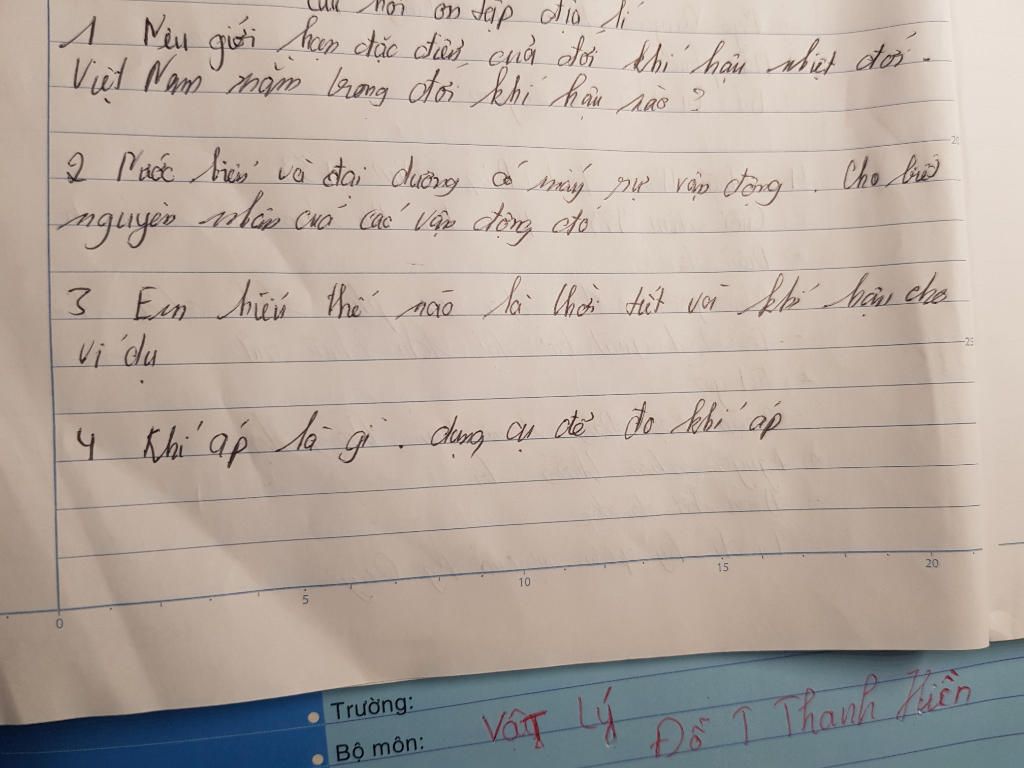 Câu hỏi ôn tập địa lí
1 Nêu giới hạn đặc điểm của đới khí hậu nhiệt đới.
Việt Nam nằm trong đới khí hậu nào?
20
2 Nước biển và đại dương có mấy sự vận động. Cho biết
nguyên nhân của các vận động đó
3 Em hiểu thế nào là thời tiết và khí hậu cho
ví dụ
25
4 Khí áp là gì. dụng cụ để đo khí áp
0 5 10 15 20
Trường:
Bộ môn: Vật Lý Đỗ T Thanh Hiền